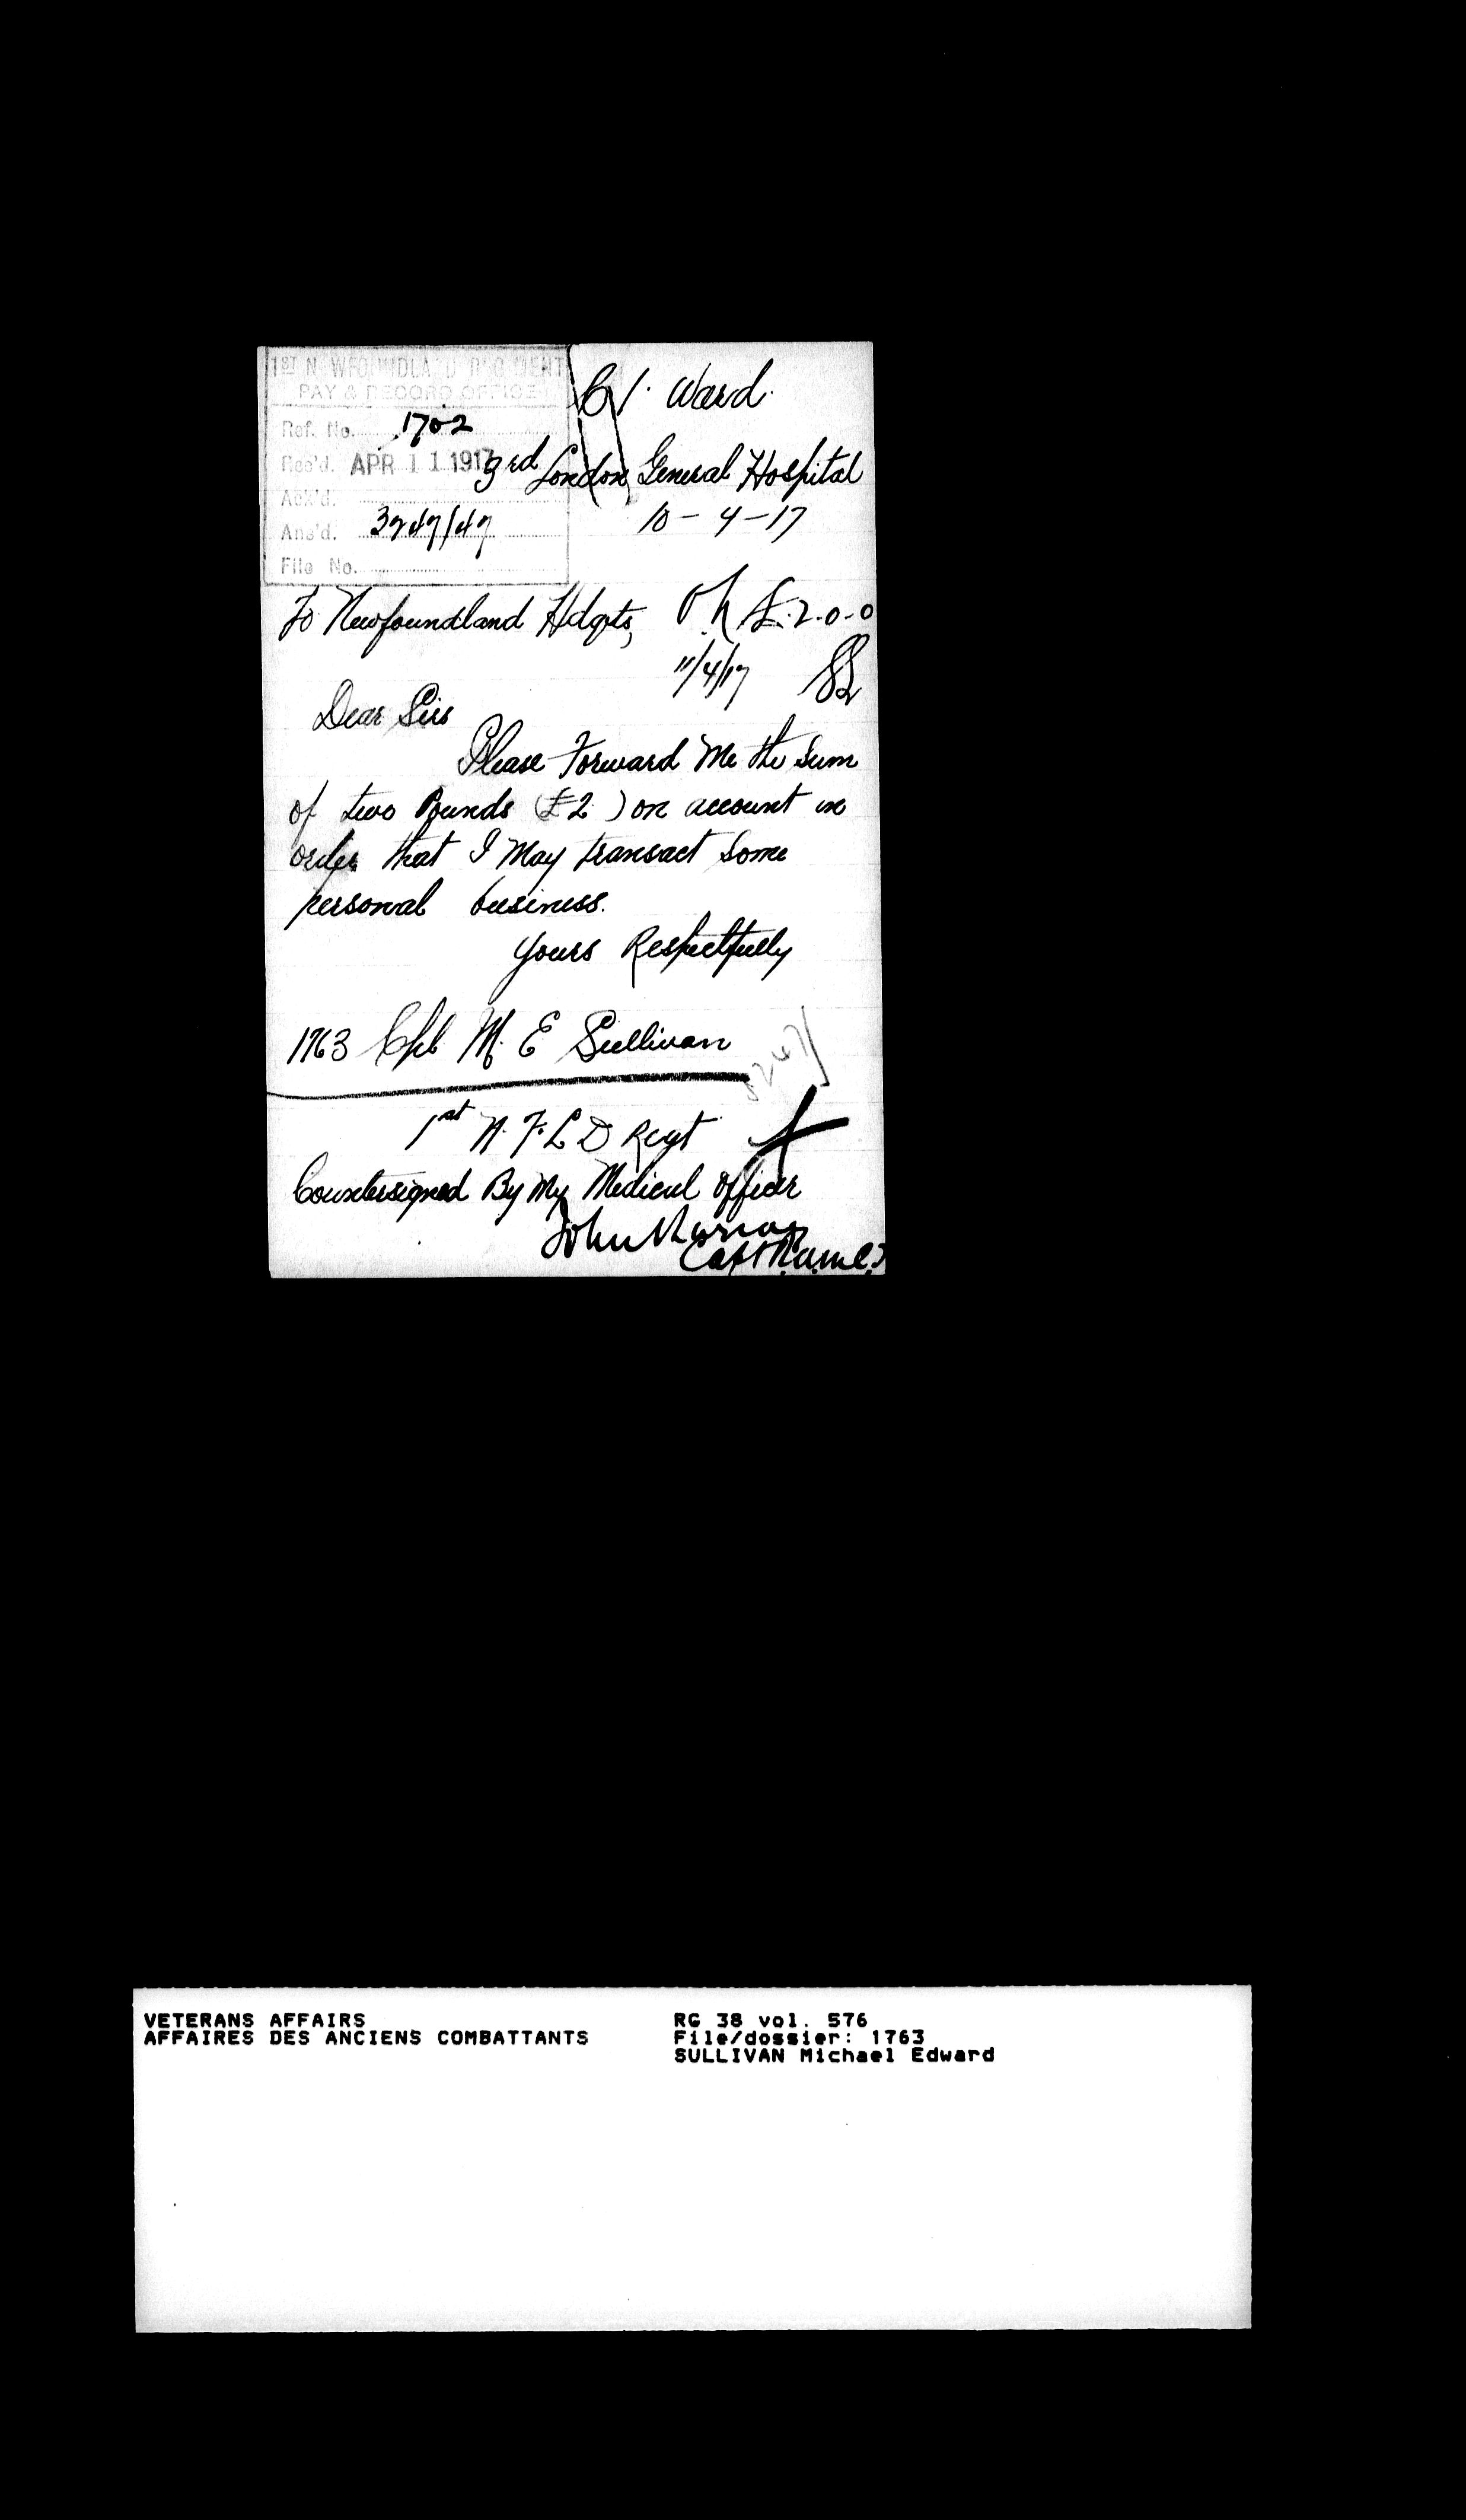 1ST NEWFOUNDLAND REGIMENT
PAY & RECORD OFFICE
Ref. No. 1702
Rec'd. APR 11 1917
Ack'd.
Ans'd. 3247/47
File No.
C1. Ward.
3rd London General Hospital
10-4-17
To Newfoundland Hdqts,
Ok £.2.0-0
11/4/17
Dear Sirs
Please Forward Me the Sum
of two Pounds (£2) on account in
order that I May transact Some
personal business.
Yours Respectfully
1763 Cpl M. E Sullivan
3247
1st N.F.L.D Regt
Countersigned By My Medical Officer
John
Capt R.a.m.c.T
VETERANS AFFAIRS
AFFAIRES DES ANCIENS COMBATTANTS
RG 38 vol. 576
File/dossier: 1763
SULLIVAN Michael Edward